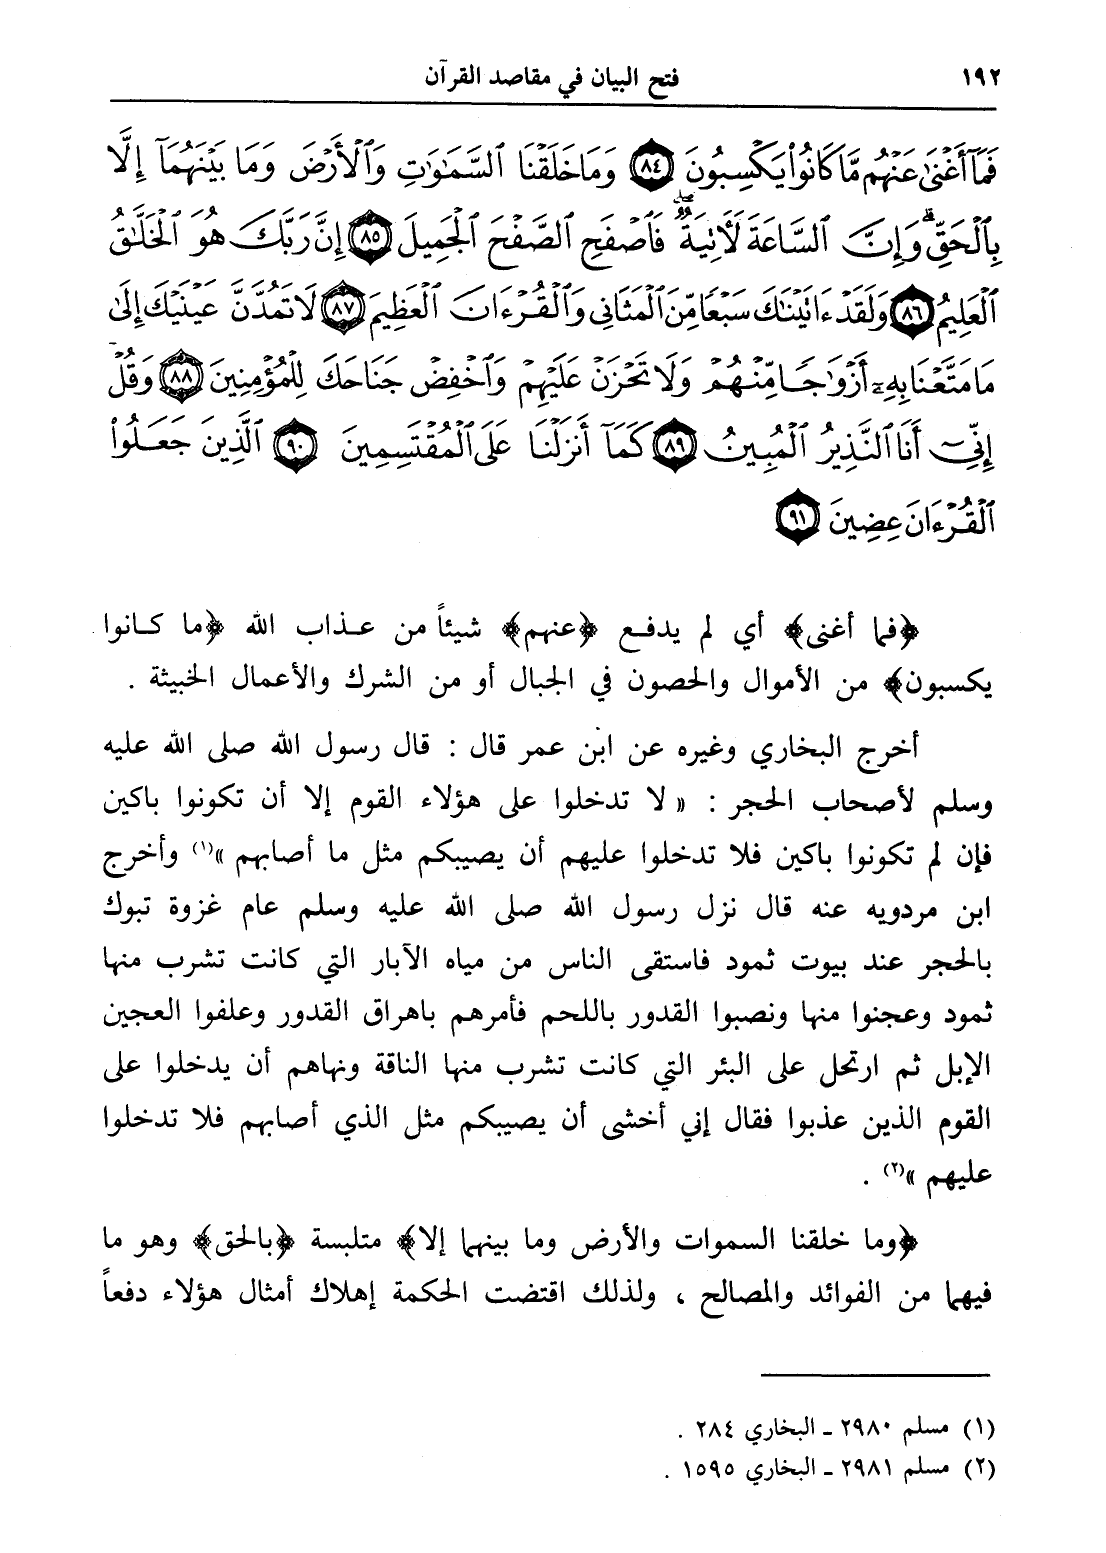 ١٩٢
فتح البيان في مقاصد القرآن
فَمَآ أَغْنَىٰ عَنْهُم مَّا كَانُوا۟ يَكْسِبُونَ ﴿٨٤﴾ وَمَا خَلَقْنَا ٱلسَّمَـٰوَٰتِ وَٱلْأَرْضَ وَمَا بَيْنَهُمَآ إِلَّا
بِٱلْحَقِّ ۗ وَإِنَّ ٱلسَّاعَةَ لَـَٔاتِيَةٌ ۖ فَٱصْفَحِ ٱلصَّفْحَ ٱلْجَمِيلَ ﴿٨٥﴾ إِنَّ رَبَّكَ هُوَ ٱلْخَلَّـٰقُ
ٱلْعَلِيمُ ﴿٨٦﴾ وَلَقَدْ ءَاتَيْنَـٰكَ سَبْعًا مِّنَ ٱلْمَثَانِى وَٱلْقُرْءَانَ ٱلْعَظِيمَ ﴿٨٧﴾ لَا تَمُدَّنَّ عَيْنَيْكَ إِلَىٰ
مَا مَتَّعْنَا بِهِۦٓ أَزْوَٰجًا مِّنْهُمْ وَلَا تَحْزَنْ عَلَيْهِمْ وَٱخْفِضْ جَنَاحَكَ لِلْمُؤْمِنِينَ ﴿٨٨﴾ وَقُلْ
إِنِّىٓ أَنَا ٱلنَّذِيرُ ٱلْمُبِينُ ﴿٨٩﴾ كَمَآ أَنزَلْنَا عَلَى ٱلْمُقْتَسِمِينَ ﴿٩٠﴾ ٱلَّذِينَ جَعَلُوا۟
ٱلْقُرْءَانَ عِضِينَ ﴿٩١﴾
﴿فما أغنى﴾ أي لم يدفع ﴿عنهم﴾ شيئاً من عذاب الله ﴿ما كانوا
يكسبون﴾ من الأموال والحصون في الجبال أو من الشرك والأعمال الخبيثة .
أخرج البخاري وغيره عن ابن عمر قال : قال رسول الله صلى الله عليه
وسلم لأصحاب الحجر : « لا تدخلوا على هؤلاء القوم إلا أن تكونوا باكين
فإن لم تكونوا باكين فلا تدخلوا عليهم أن يصيبكم مثل ما أصابهم »(١) وأخرج
ابن مردويه عنه قال نزل رسول الله صلى الله عليه وسلم عام غزوة تبوك
بالحجر عند بيوت ثمود فاستقى الناس من مياه الآبار التي كانت تشرب منها
ثمود وعجنوا منها ونصبوا القدور باللحم فأمرهم باهراق القدور وعلفوا العجين
الإبل ثم ارتحل على البئر التي كانت تشرب منها الناقة ونهاهم أن يدخلوا على
القوم الذين عذبوا فقال إني أخشى أن يصيبكم مثل الذي أصابهم فلا تدخلوا
عليهم »(٢) .
﴿وما خلقنا السموات والأرض وما بينهما إلا﴾ متلبسة ﴿بالحق﴾ وهو ما
فيهما من الفوائد والمصالح ، ولذلك اقتضت الحكمة إهلاك أمثال هؤلاء دفعاً
(١) مسلم ٢٩٨٠ ـ البخاري ٢٨٤ .
(٢) مسلم ٢٩٨١ ـ البخاري ١٥٩٥ .